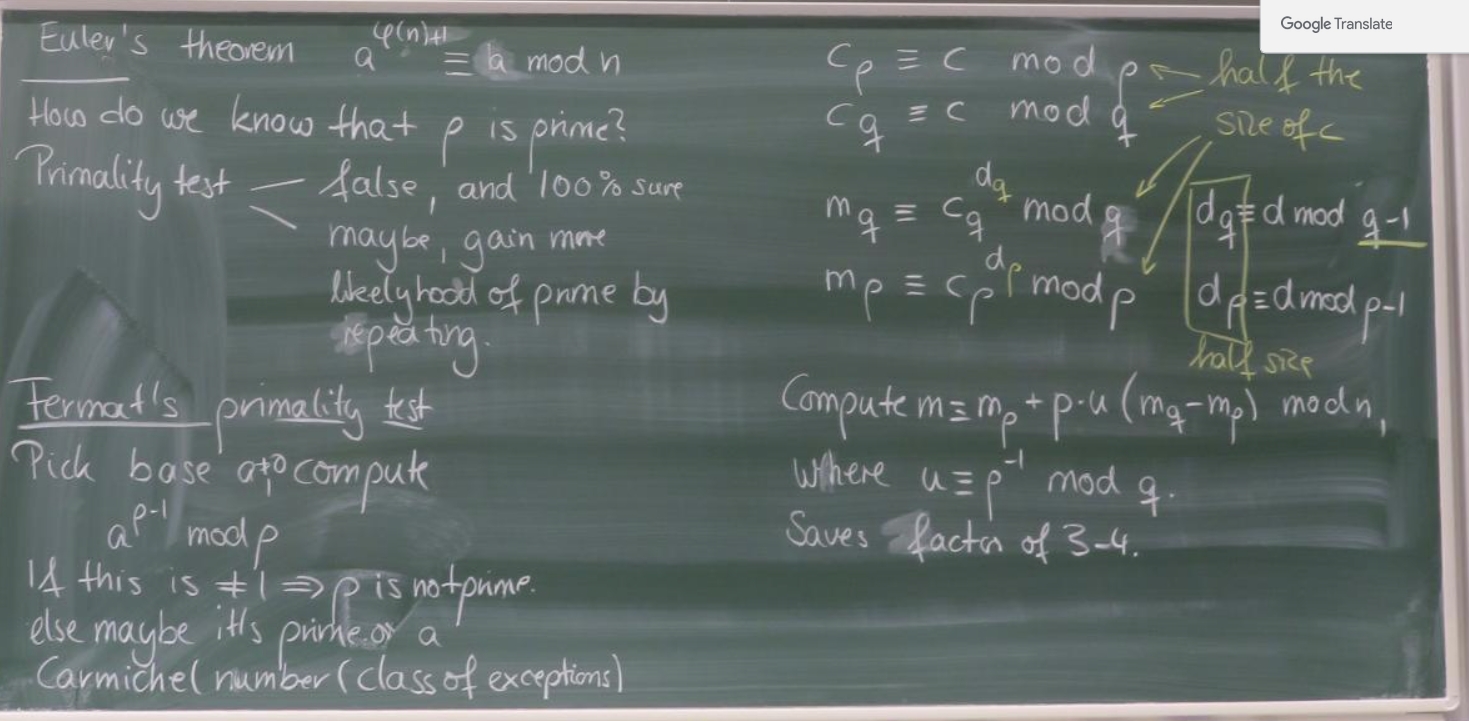 Euler's theorem a^{φ(n)+1} ≡ a mod n
How do we know that p is prime?
Primality test — false, and 100% sure
maybe, gain more
likelyhood of prime by
repeating.
Fermat's primality test
Pick base a≠0 compute
a^{p-1} mod p
If this is ≠ 1 ⇒ p is not prime.
else maybe it's prime or a
Carmichel number (class of exceptions)
Google Translate
c_p ≡ c mod p ← half the
c_q ≡ c mod q size of c
m_q ≡ c_q^{d_q} mod q d_q ≡ d mod q-1
m_p ≡ c_p^{d_p} mod p d_p ≡ d mod p-1
half size
Compute m ≡ m_p + p·u (m_q - m_p) mod n,
where u ≡ p^{-1} mod q.
Saves factor of 3-4.